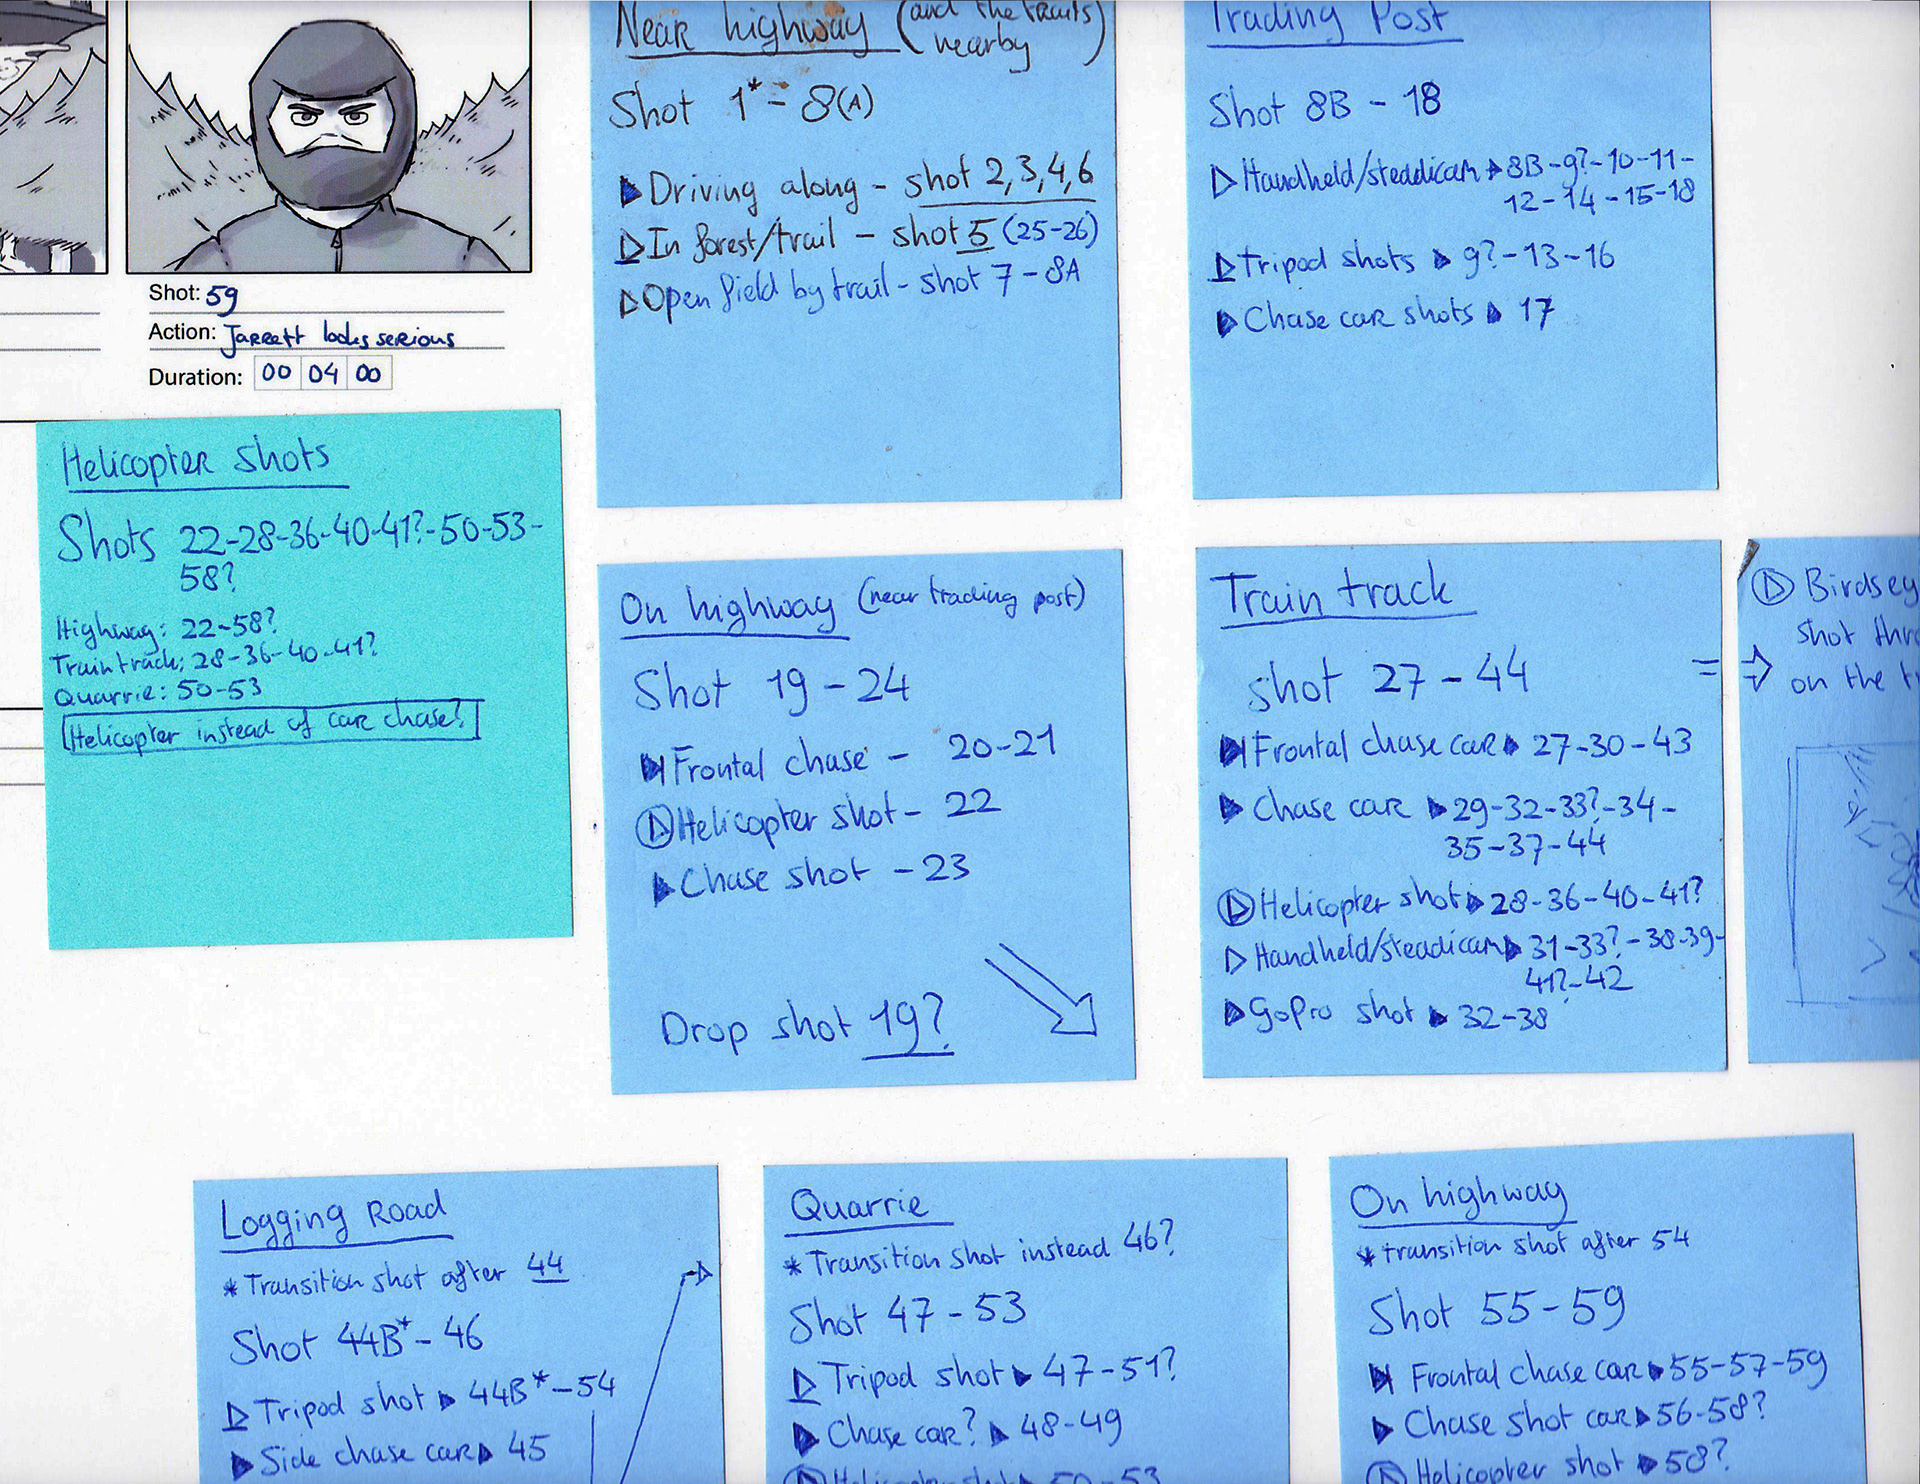 Shot: 59
Action: Jarrett looks serious
Duration: 00 04 00
Helicopter shots
Shots 22-28-36-40-41?-50-53-
58?
Highway: 22-58?
Traintrack: 28-36-40-41?
Quarrie: 50-53
Helicopter instead of car chase?
Near highway (and the trails
nearby)
Shot 1*- 8(A)
Driving along - shot 2,3,4,6
In forest/trail - shot 5 (25-26)
Open field by trail - shot 7 - 8A
Trading Post
Shot 8B - 18
Handheld/steddicam 8B-9?-10-11-
12-14-15-18
Tripod shots 9?-13-16
Chase car shots 17
On highway (near trading post)
Shot 19-24
Frontal chase - 20-21
Helicopter shot - 22
Chase shot - 23
Drop shot 19?
Train track
shot 27-44 =
Frontal chase car 27-30-43
Chase car 29-32-33?-34-
35-37-44
Helicopter shot 28-36-40-41?
Handheld/steadicam 31-33?-38-39-
41?-42
GoPro shot 32-38
Birdsey
shot thr
on the t
Logging Road
*Transition shot after 44
Shot 44B*-46
Tripod shot 44B*-54
Side chase car 45
Quarrie
*Transition shot instead 46?
Shot 47-53
Tripod shot 47-51?
Chase car? 48-49
Helicopter shot 50-53
On highway
*transition shot after 54
Shot 55-59
Frontal chase car 55-57-59
Chase shot car 56-58?
Helicopter shot 58?